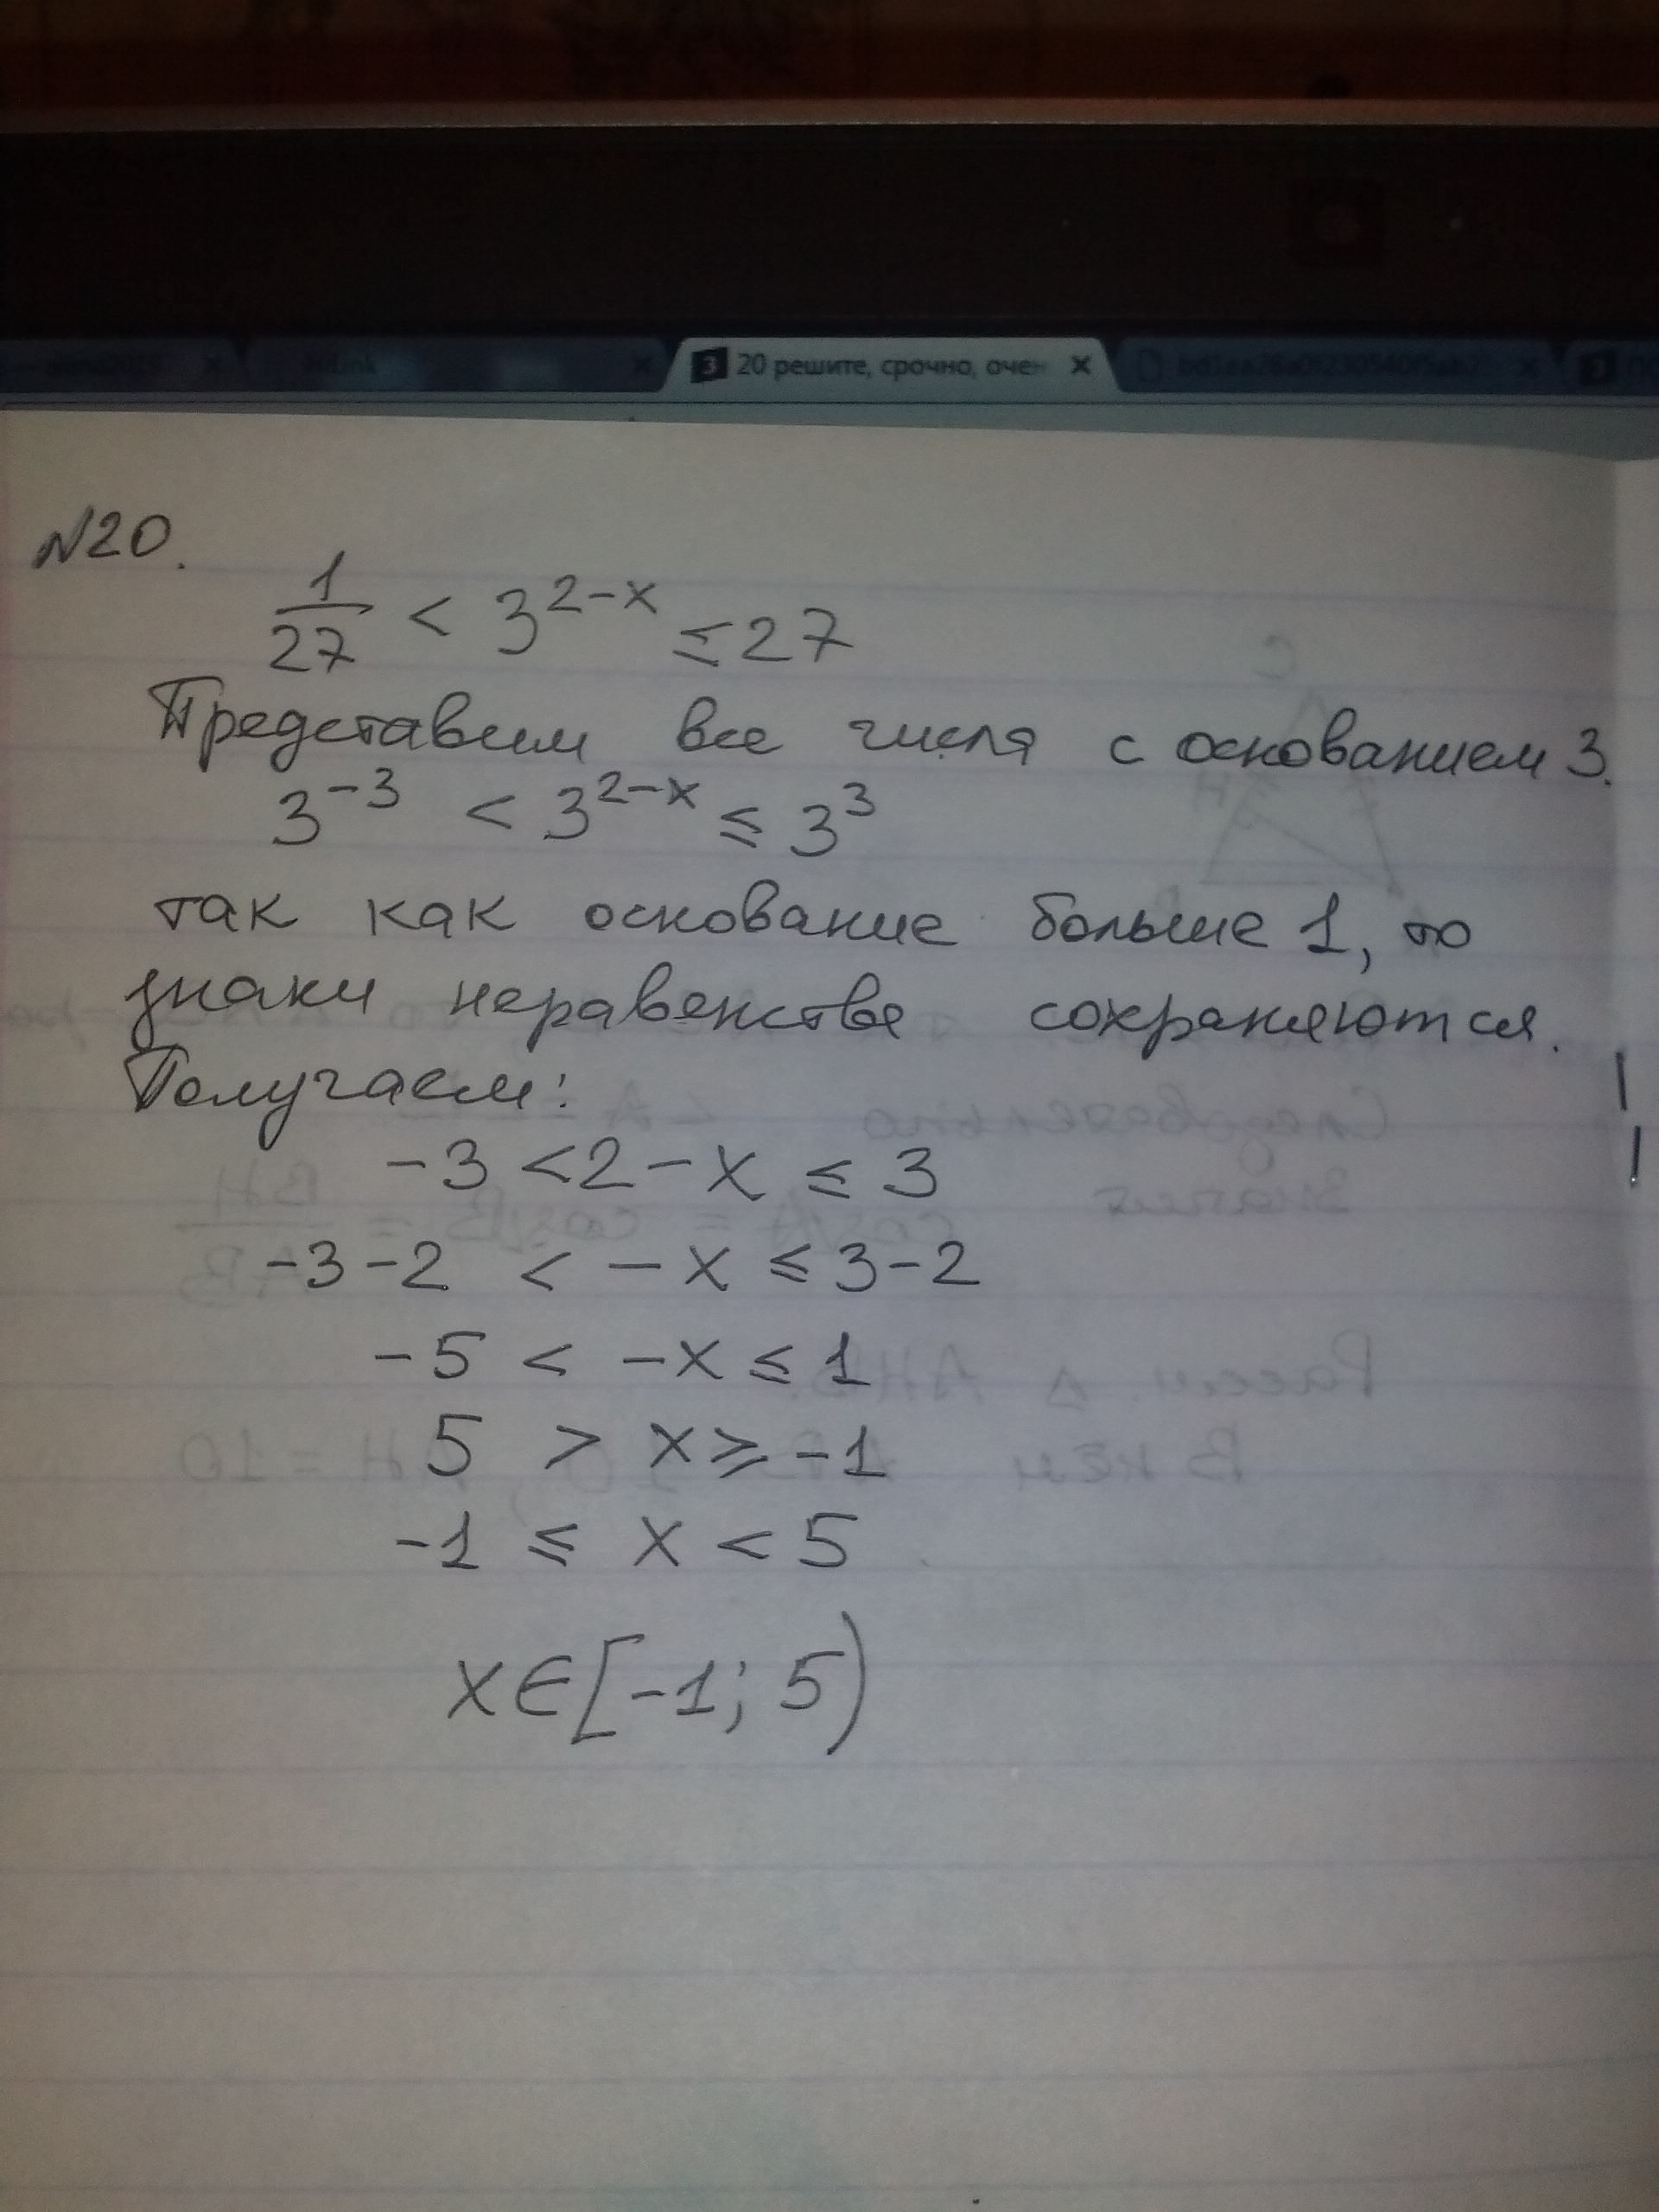 20 решите, срочно, очен
N20.
1/27 < 3^(2-x) ≤ 27
Представим все числа с основанием 3.
3^(-3) < 3^(2-x) ≤ 3^3
так как основание больше 1, то
знаки неравенства сохраняются.
Получаем:
-3 < 2 - x ≤ 3
-3 - 2 < - x ≤ 3 - 2
-5 < -x ≤ 1
5 > x ≥ -1
-1 ≤ x < 5
x ∈ [-1; 5)